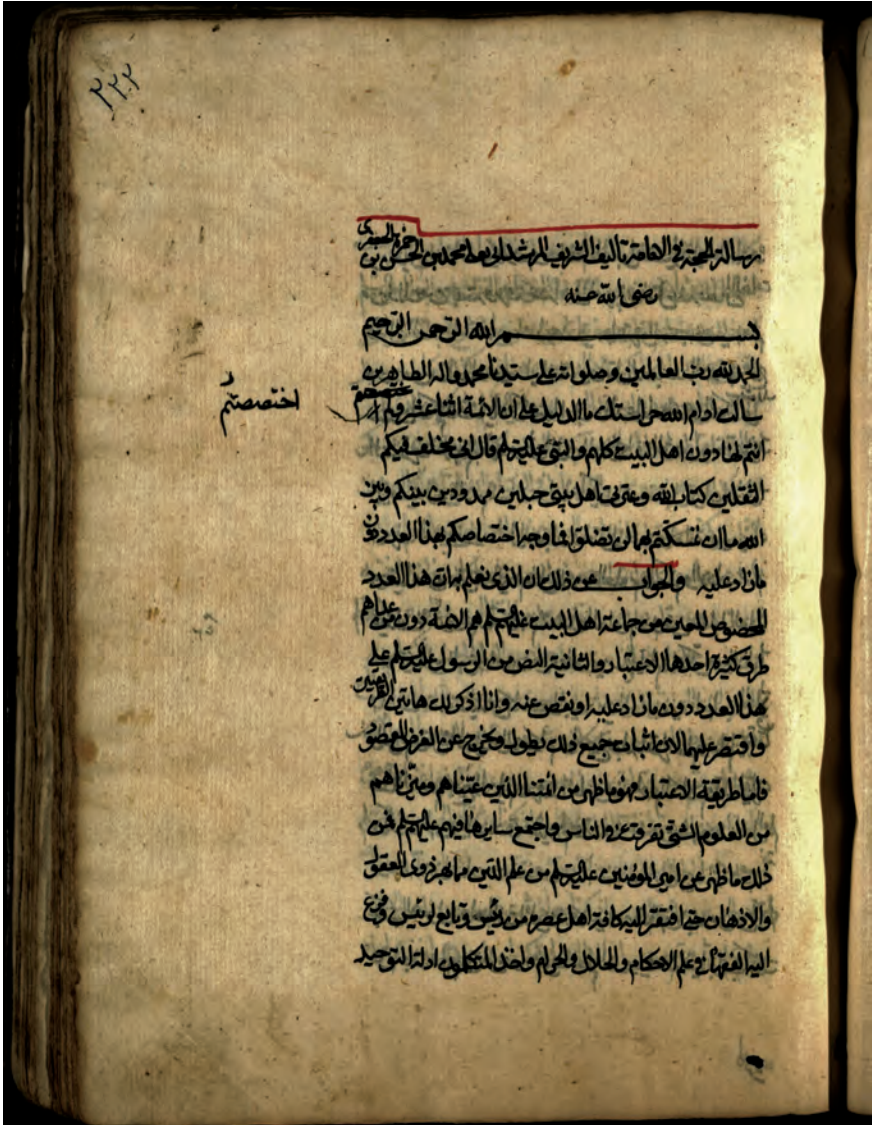 ٢٢٢
رسالة الحجة في الامامة تأليف الشريف المرشد ابي يعلى محمد بن الحسن بن حمزة الجعفري
رضي الله عنه
بسم الله الرحمن الرحيم
الحمد لله رب العالمين وصلواته على سيدنا محمد واله الطاهرين
سالت ادام الله حراستك ما الدليل على ان الائمة اثنا عشر وكم
اختصصتم
انتم لهنا دون اهل البيت كلهم والنبي عليه السلم قال اني مخلف فيكم
الثقلين كتاب الله وعترتي اهل بيتي حبلين ممدودين بينكم وبين
الله ما ان تمسكتم بهما لن تضلوا فما وجه اختصاصكم بهذا العدد دون
ما زاد عليه والجواب عن ذلك ان الذي نعلم به ان هذا العدد
المخصوص المعين من جماعة اهل البيت عليهم السلم هم الائمة دون من عداهم
طرق كثيرة احدها الاعتبار والثانية النص من الرسول عليه السلم على
هذا العدد دون ما زاد عليه او نقص عنه وانا اذكر لك هاتين الطريقتين
واقتصر عليهما لان اثبات جميع ذلك يطول ويخرج عن الغرض المقصود
فاما طريقة الاعتبار فهو ما ظهر من ائمتنا الذين عيناهم وميزناهم
من العلوم التي تفرقت في الناس واجتمع سايرها فيهم عليهم السلم فمن
ذلك ما ظهر عن امير المؤمنين عليه السلم من علم الدين ما بهر ذوى العقول
والاذهان حتى افتقر اليه كافة اهل عصره من رئيس وتابع لرئيس وفزع
اليه الفقهاء في علم الاحكام والحلال والحرام واخذ المتكلمون ادلة التوحيد